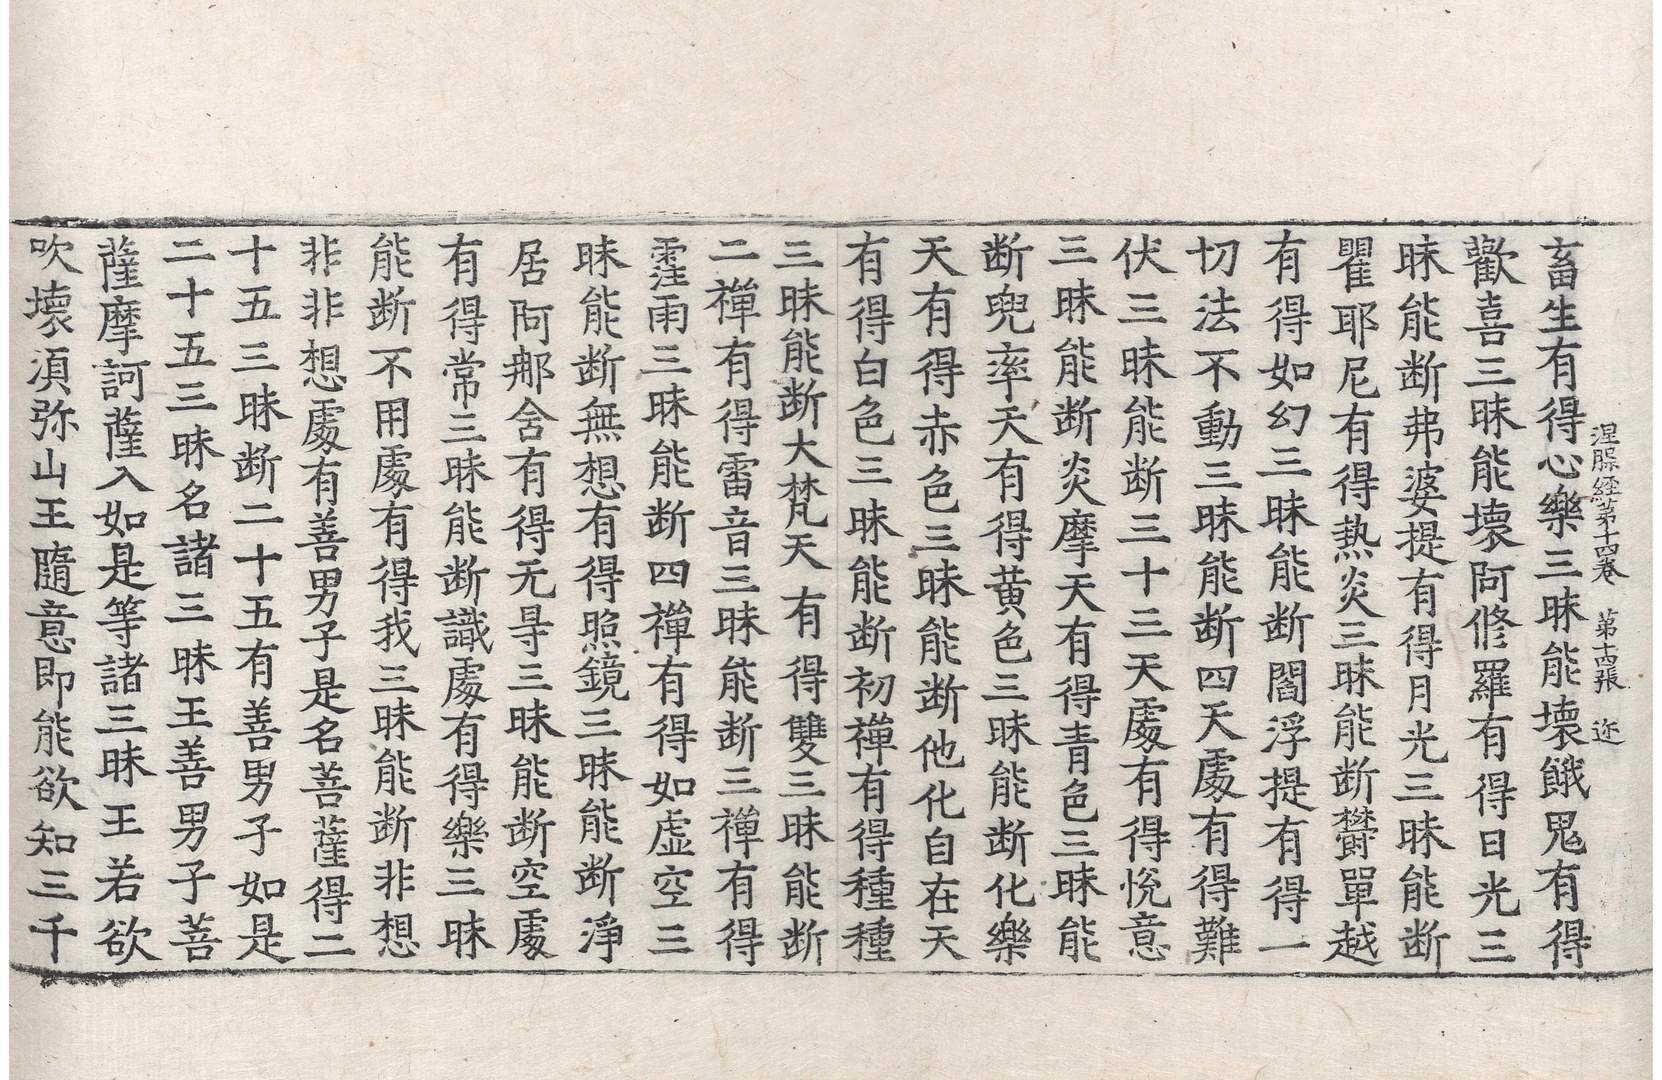 涅槃經第十四卷　第十四張　迩
畜生有得心樂三昧能壞餓鬼有得
歡喜三昧能壞阿修羅有得日光三
昧能断弗婆提有得月光三昧能断
瞿耶尼有得熱炎三昧能断欝單越
有得如幻三昧能断閻浮提有得一
切法不動三昧能断四天處有得難
伏三昧能断三十三天處有得悅意
三昧能断炎摩天有得青色三昧能
断兜率天有得黄色三昧能断化樂
天有得赤色三昧能断他化自在天
有得白色三昧能断初禪有得種種
三昧能断大梵天有得雙三昧能断
二禪有得雷音三昧能断三禪有得
霔雨三昧能断四禪有得如虛空三
昧能断無想有得照鏡三昧能断淨
居阿那舍有得无㝵三昧能断空處
有得常三昧能断識處有得樂三昧
能断不用處有得我三昧能断非想
非非想處有善男子是名菩薩得二
十五三昧断二十五有善男子如是
二十五三昧名諸三昧王善男子菩
薩摩訶薩入如是等諸三昧王若欲
吹壞須弥山王隨意即能欲知三千